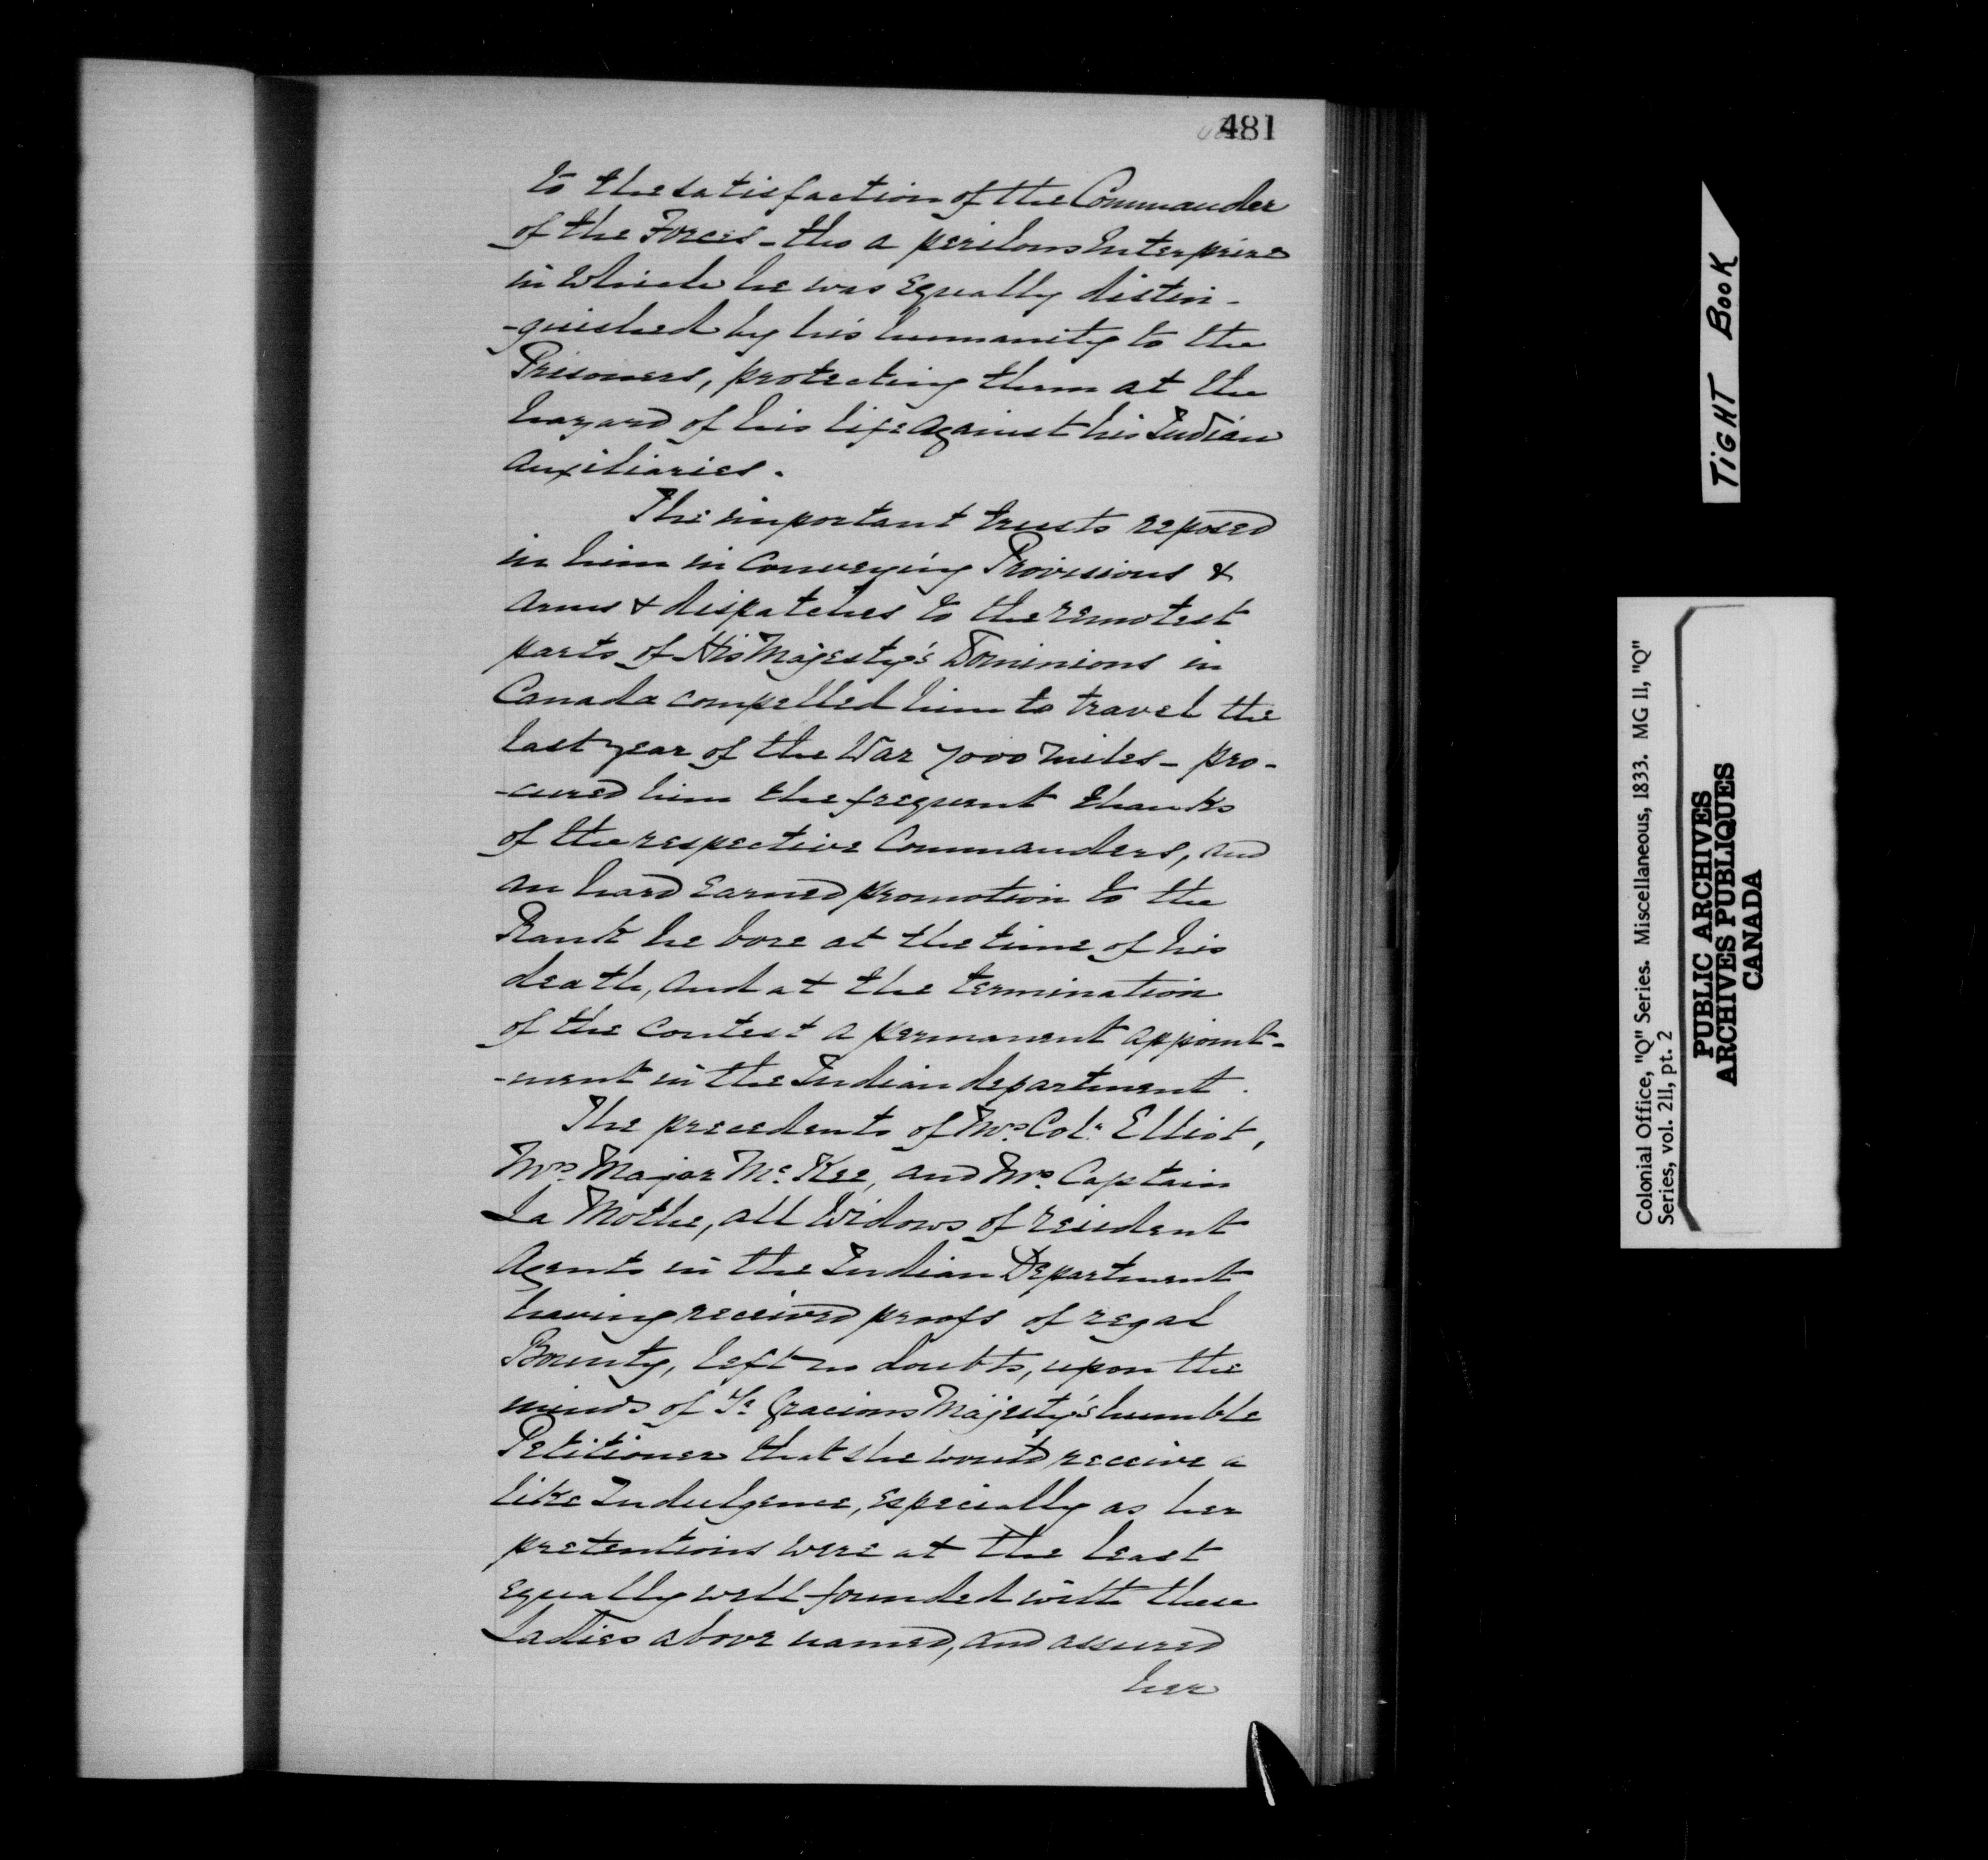 481
to the satisfaction of the Commander
of the Forces - tho a perilous Enterprise
in which he was Equally distin-
-guished by his humanity to the
Prisoners, protecting them at the
hazard of his life against his Indian
auxiliaries.
The important trusts reposed
in him in Conveying Provisions &
arms & dispatches to the remotest
parts of His Majesty's Dominions in
Canada compelled him to travel the
last year of the War 7000 Miles - pro-
-cured him the frequent thanks
of the respective Commanders, and
an hard earned promotion to the
Rank he bore at the time of his
death, and at the termination
of the Contest a permanent appoint-
-ment in the Indian department.
The precedents of Mrs. Colr. Elliot,
Mrs. Major Mc.Kee, and Mrs. Captain
La Mothe, all Widows of resident
Agents in the Indian Department
having received proofs of regal
Bounty, left no doubts, upon the
minds of Yr. Gracious Majesty's humble
Petitioner that she would receive a
like Indulgence, especially as her
pretentions were at the least
equally well-founded with these
Ladies above named, and assured
her
TIGHT BOOK
Colonial Office, "Q" Series. Miscellaneous, 1833. MG 11, "Q"
Series, vol. 211, pt. 2
PUBLIC ARCHIVES
ARCHIVES PUBLIQUES
CANADA